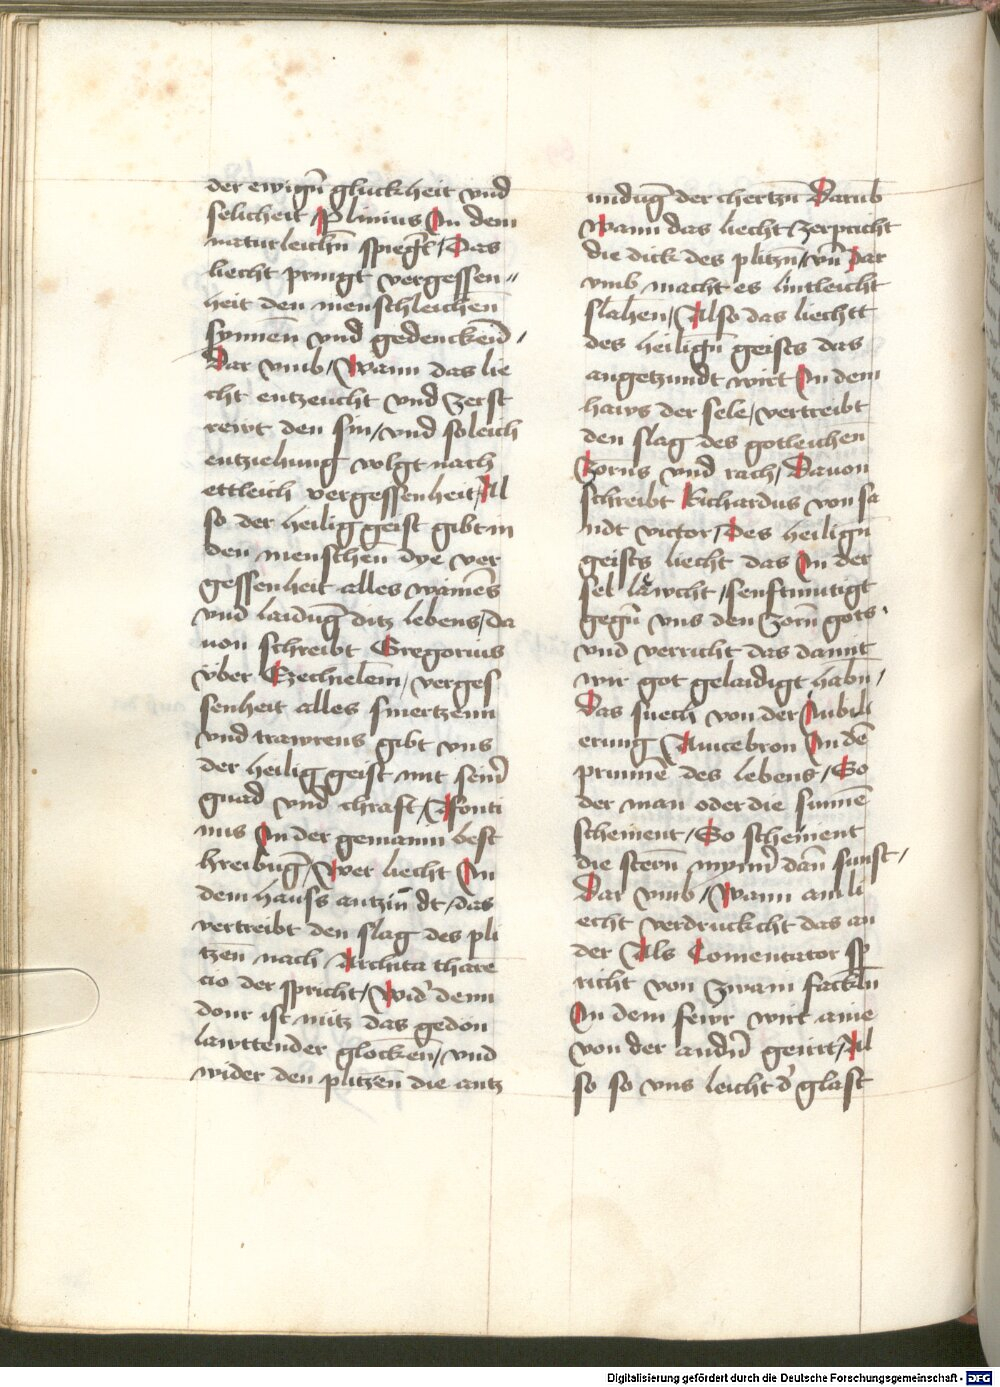 der ewigñ gluckheit vnd
selicheit / Plinius In dem
naturleichñ spiegl̃ / Das
liecht pringt vergessen〃
heit den menschleichen
synnen vnd gedenckeñ /
Dar vmb / Wann das lie
cht entzeucht vnd zerst
rewt den sin / vnd soleich
entziehung volgt nach
ettleich vergessenheit / Al
so der heilig geist gibt in
den menschen dye ver
gessenheit alles wainẽs
vnd laidug̃ ditz lebens / da
uon schreibt Gregorius
vber Ezechielem / verges
senheit alles smertzenn
vnd trawrens gibt vns
der heilig geist mit seinr̃
gnad vnd chraft / Afonti
nus In der gemainn besc
hreibug̃ / Wer liecht In
dem hauss antzündt / das
vertreibt den slag des pli
tzen nach Archita tharẽ
cio der spricht / Wid̾ denn
donr ist nütz das gedon
lawttender glocken / vnd
wider den plitzen die antz
undug̃ der chertzñ Darub̃
Wann das liecht zerpricht
die dick des plitzñ / vñ dar
vmb macht es lintleicht
slahen / Also das liechtt
des heiligñ geists das
angetzundt wirt In dem
haws der sele / vertreibt
den slag des gotleichen
Zorns vnd rach / Dauon
schreibt Richardus von sa
ndt victor / Des heiligñ
geists liecht das In der
sel läwcht / senftmutigt
gegñ vns den Zorñ gots
vnd verricht das damit
wir got gelaidigt habñ /
Das suech von der Iubili
erung Auicebron In dẽ
prunnẽ des lebens / So
der man oder die sunnẽ
scheinent / So scheinent
die sterñ mynnr̃ dañ sunst /
Dar vmb / Wann ain li
echt verdruckcht das an
der Als Comentator sp
richt von Zwain fackln
In dem fewr wirt aine
von der andñ geirrt / Al
so so vns leicht d̾ glast
Digitalisierung gefördert durch die Deutsche Forschungsgemeinschaft - DFG